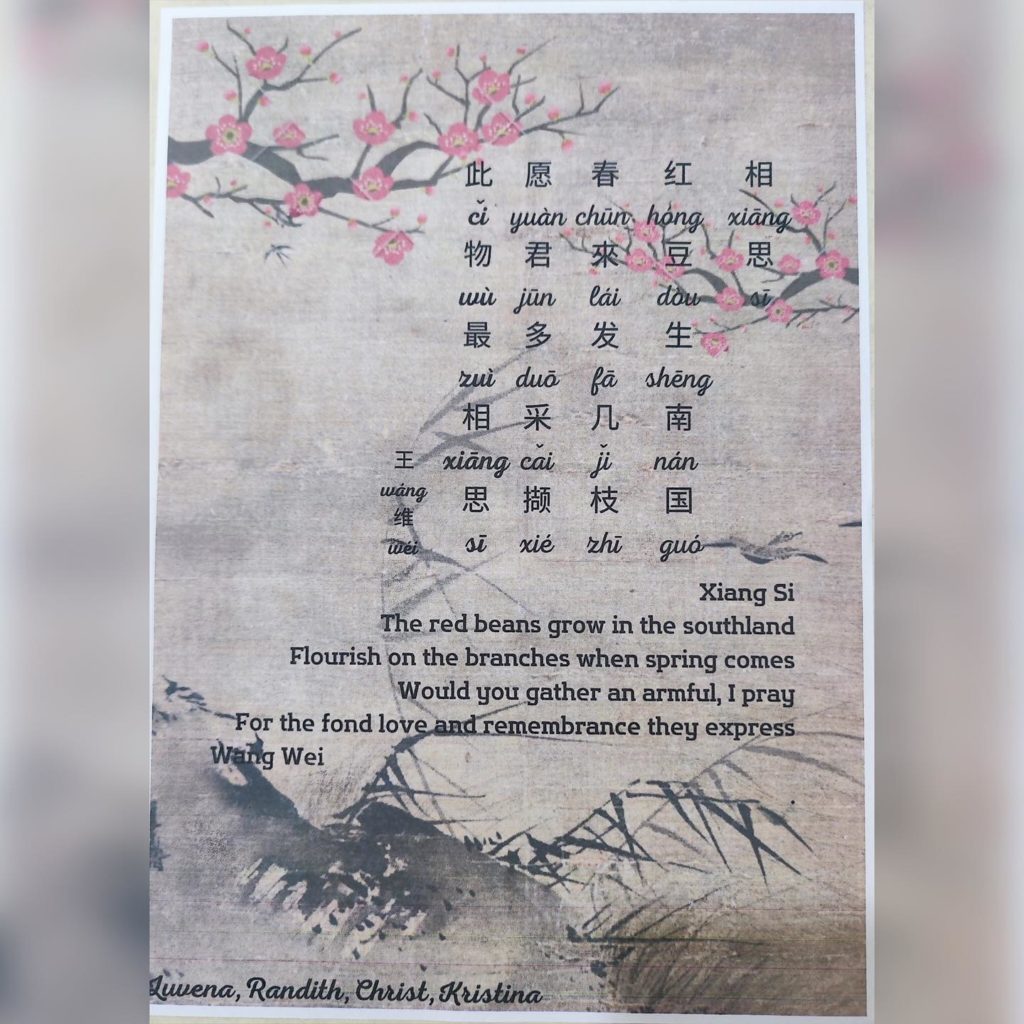 相 xiāng 思 sī
红 hóng 豆 dòu 生 shēng 南 nán 国 guó
春 chūn 來 lái 发 fā 几 jǐ 枝 zhī
愿 yuàn 君 jūn 多 duō 采 cǎi 撷 xié
此 cǐ 物 wù 最 zuì 相 xiāng 思 sī
王 wáng 维 wéi
Xiang Si
The red beans grow in the southland
Flourish on the branches when spring comes
Would you gather an armful, I pray
For the fond love and remembrance they express
Wang Wei
Luvena, Randith, Christ, Kristina